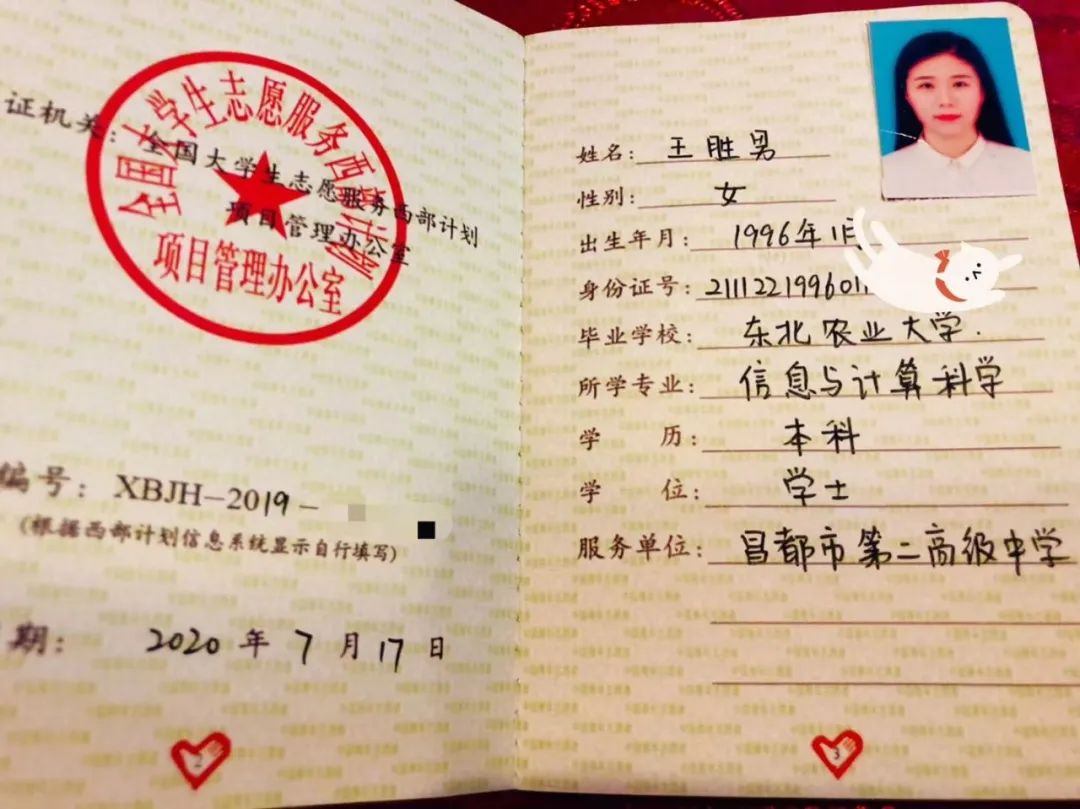 证机关：全国大学生志愿服务西部计划
项目管理办公室
全国大学生志愿服务西部计划
项目管理办公室
编号：XBJH-2019-
(根据西部计划信息系统显示自行填写)
期：2020年7月17日
2
姓名：王胜男
性别：女
出生年月：1996年1月
身份证号：211122199601
毕业学校：东北农业大学.
所学专业：信息与计算科学
学历：本科
学位：学士
服务单位：昌都市第二高级中学
3